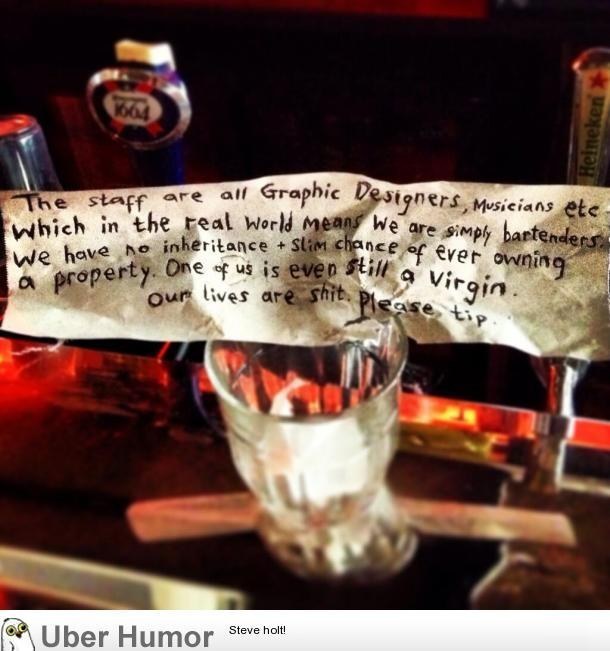 1664
Heineken
The staff are all Graphic Designers, Musicians etc.
Which in the real World means We are simply bartenders.
We have no inheritance + Slim chance of ever owning
a property. One of us is even still a Virgin.
Our lives are shit. please tip.
Uber Humor
Steve holt!